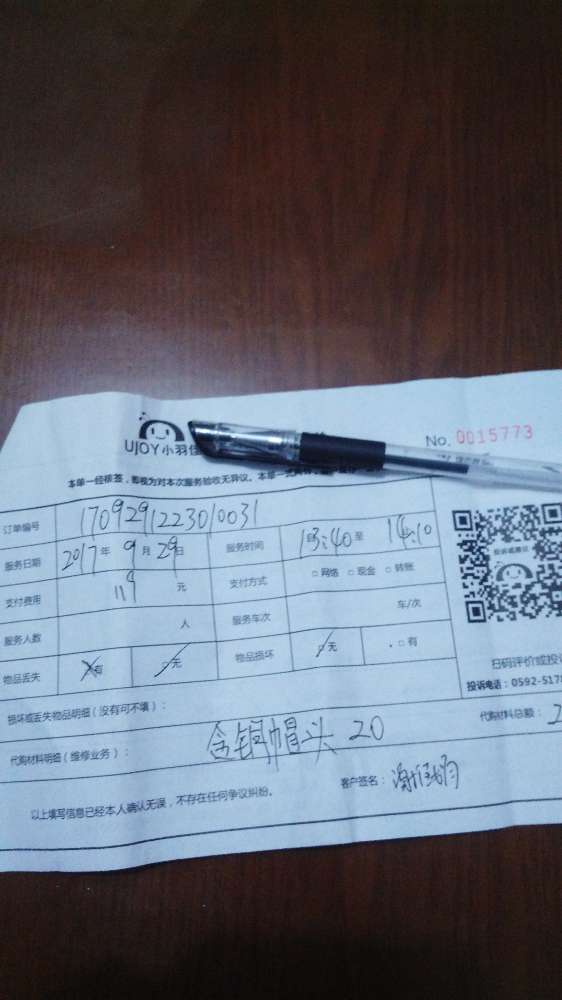 UJOY小羽佳
No. 0015773
本单一经核签，即视为对本次服务验收无异议。本单一
订单编号 170929122301003​1
服务日期 2017年9月29日 服务时间 13:40至14:10
支付费用 119元 支付方式 □网络 □现金 □转账
服务人数 人 服务车次 车/次
物品丢失 □有 □无 物品损坏 □无 □有
投诉或建议
扫码评价或投诉
投诉电话：0592-5178
损坏或丢失物品明细（没有可不填）：
代购材料明细（维修业务）： 含铜帽头 20 代购材料总额：2
客户签名：
以上填写信息已经本人确认无误，不存在任何争议纠纷。